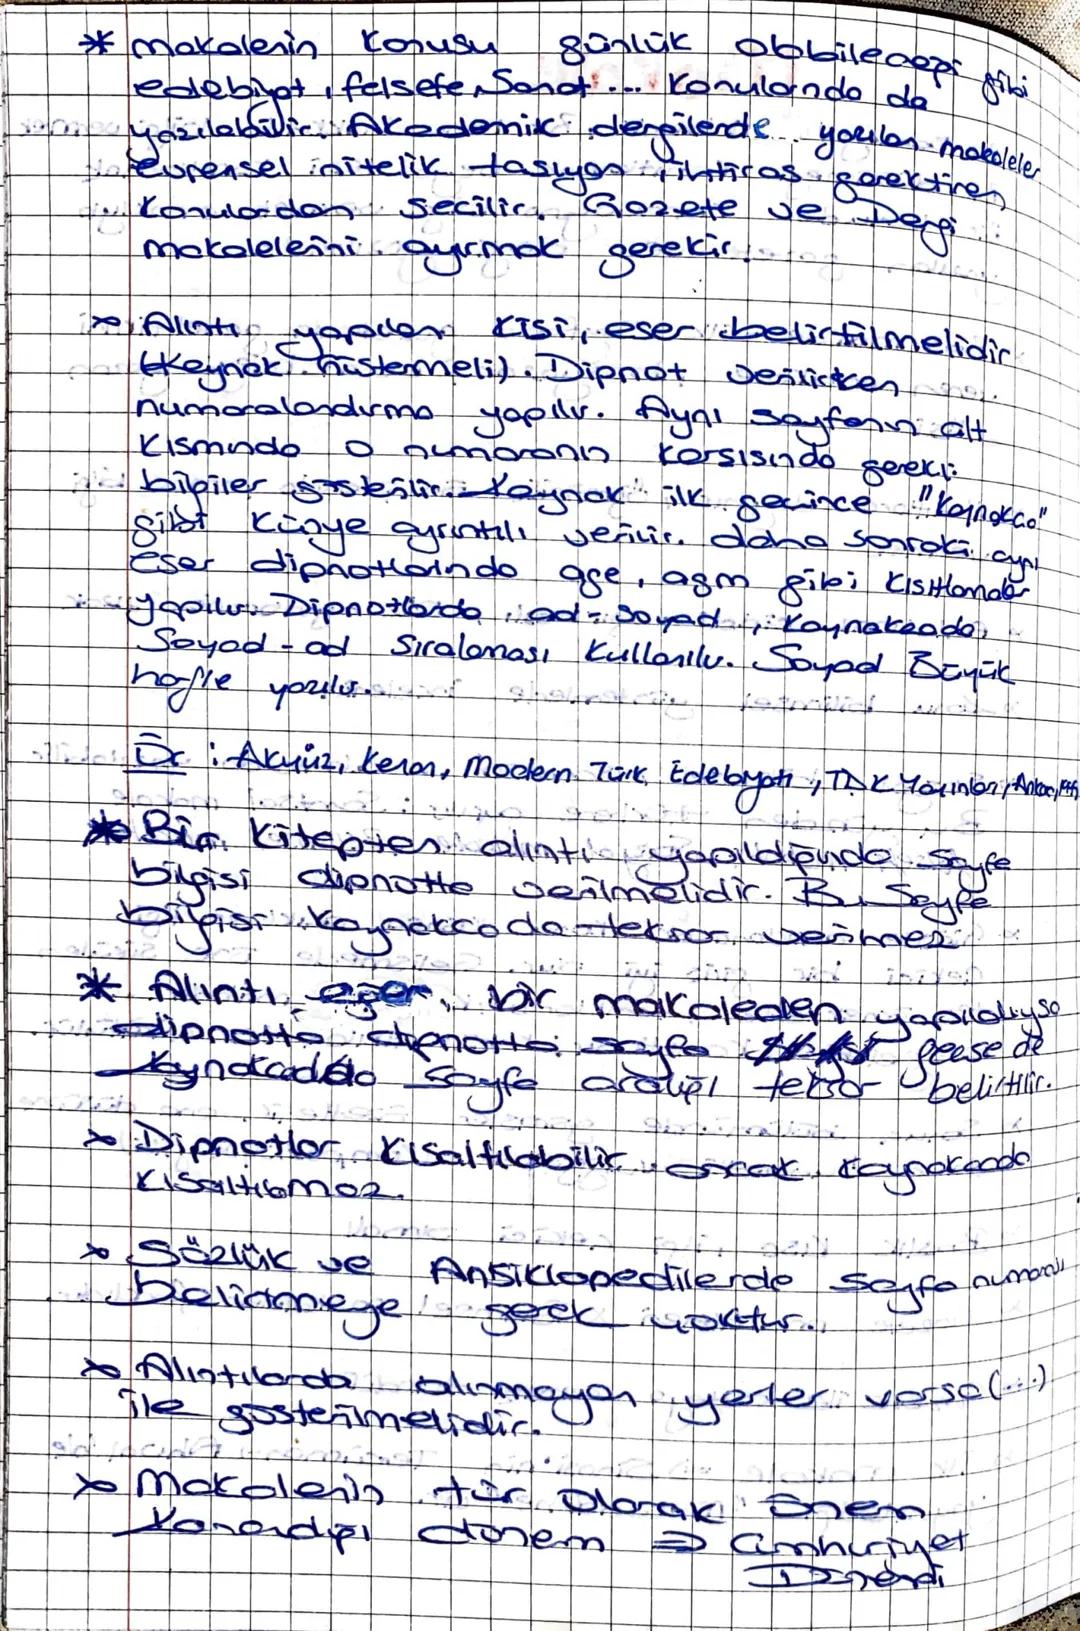 * Makalenin konusu günlük olabileceği gibi
edebiyat, felsefe, Sanat ... konularında da
yazılabilir. Akademik dergilerde yazılan makaleler
evrensel nitelik taşıyan, ihtiras gerektiren
konulardan seçilir. Gazete ve Dergi
makalelerini ayırmak gerekir.
* Alıntı yapılan kişi, eser belirtilmelidir
(Kaynak göstermeli). Dipnot verilirken
numaralandırma yapılır. Aynı sayfanın alt
kısmında o numaranın karşısında gerekli
bilgiler gösterilir. Kaynak ilk geçince "Kaynakça"
gibi künye ayrıntılı verilir. daha sonraki aynı
eser dipnotlarında age, agm gibi kısıtlamalar
yapılır. Dipnotlarda, ad-soyad, Kaynakçada,
Soyad-ad sıralaması kullanılır. Soyad Büyük
harfle yazılır.
Ör : Akyüz, Kenan, Modern Türk Edebiyatı, TDK Yayınları, Ankara,
* Bir kitaptan alıntı yapıldığında sayfa
bilgisi dipnotta verilmelidir. Bu sayfa
bilgisi kaynakçada tekrar verilmez
* Alıntı, eğer, bir makaleden yapıldıysa
dipnotta dipnotta sayfa geçse de
kaynakçada sayfa aralığı tekrar belirtilir.
* Dipnotlar kısaltılabilir ancak kaynakçada
kısaltılamaz.
* Sözlük ve Ansiklopedilerde sayfa numarası
belirtmeye gerek yoktur.
* Alıntılarda alınmayan yerler varsa (...)
ile gösterilmelidir.
* Makalenin tür olarak önem
Kazandığı dönem ⇒ Cumhuriyet
Dönemi